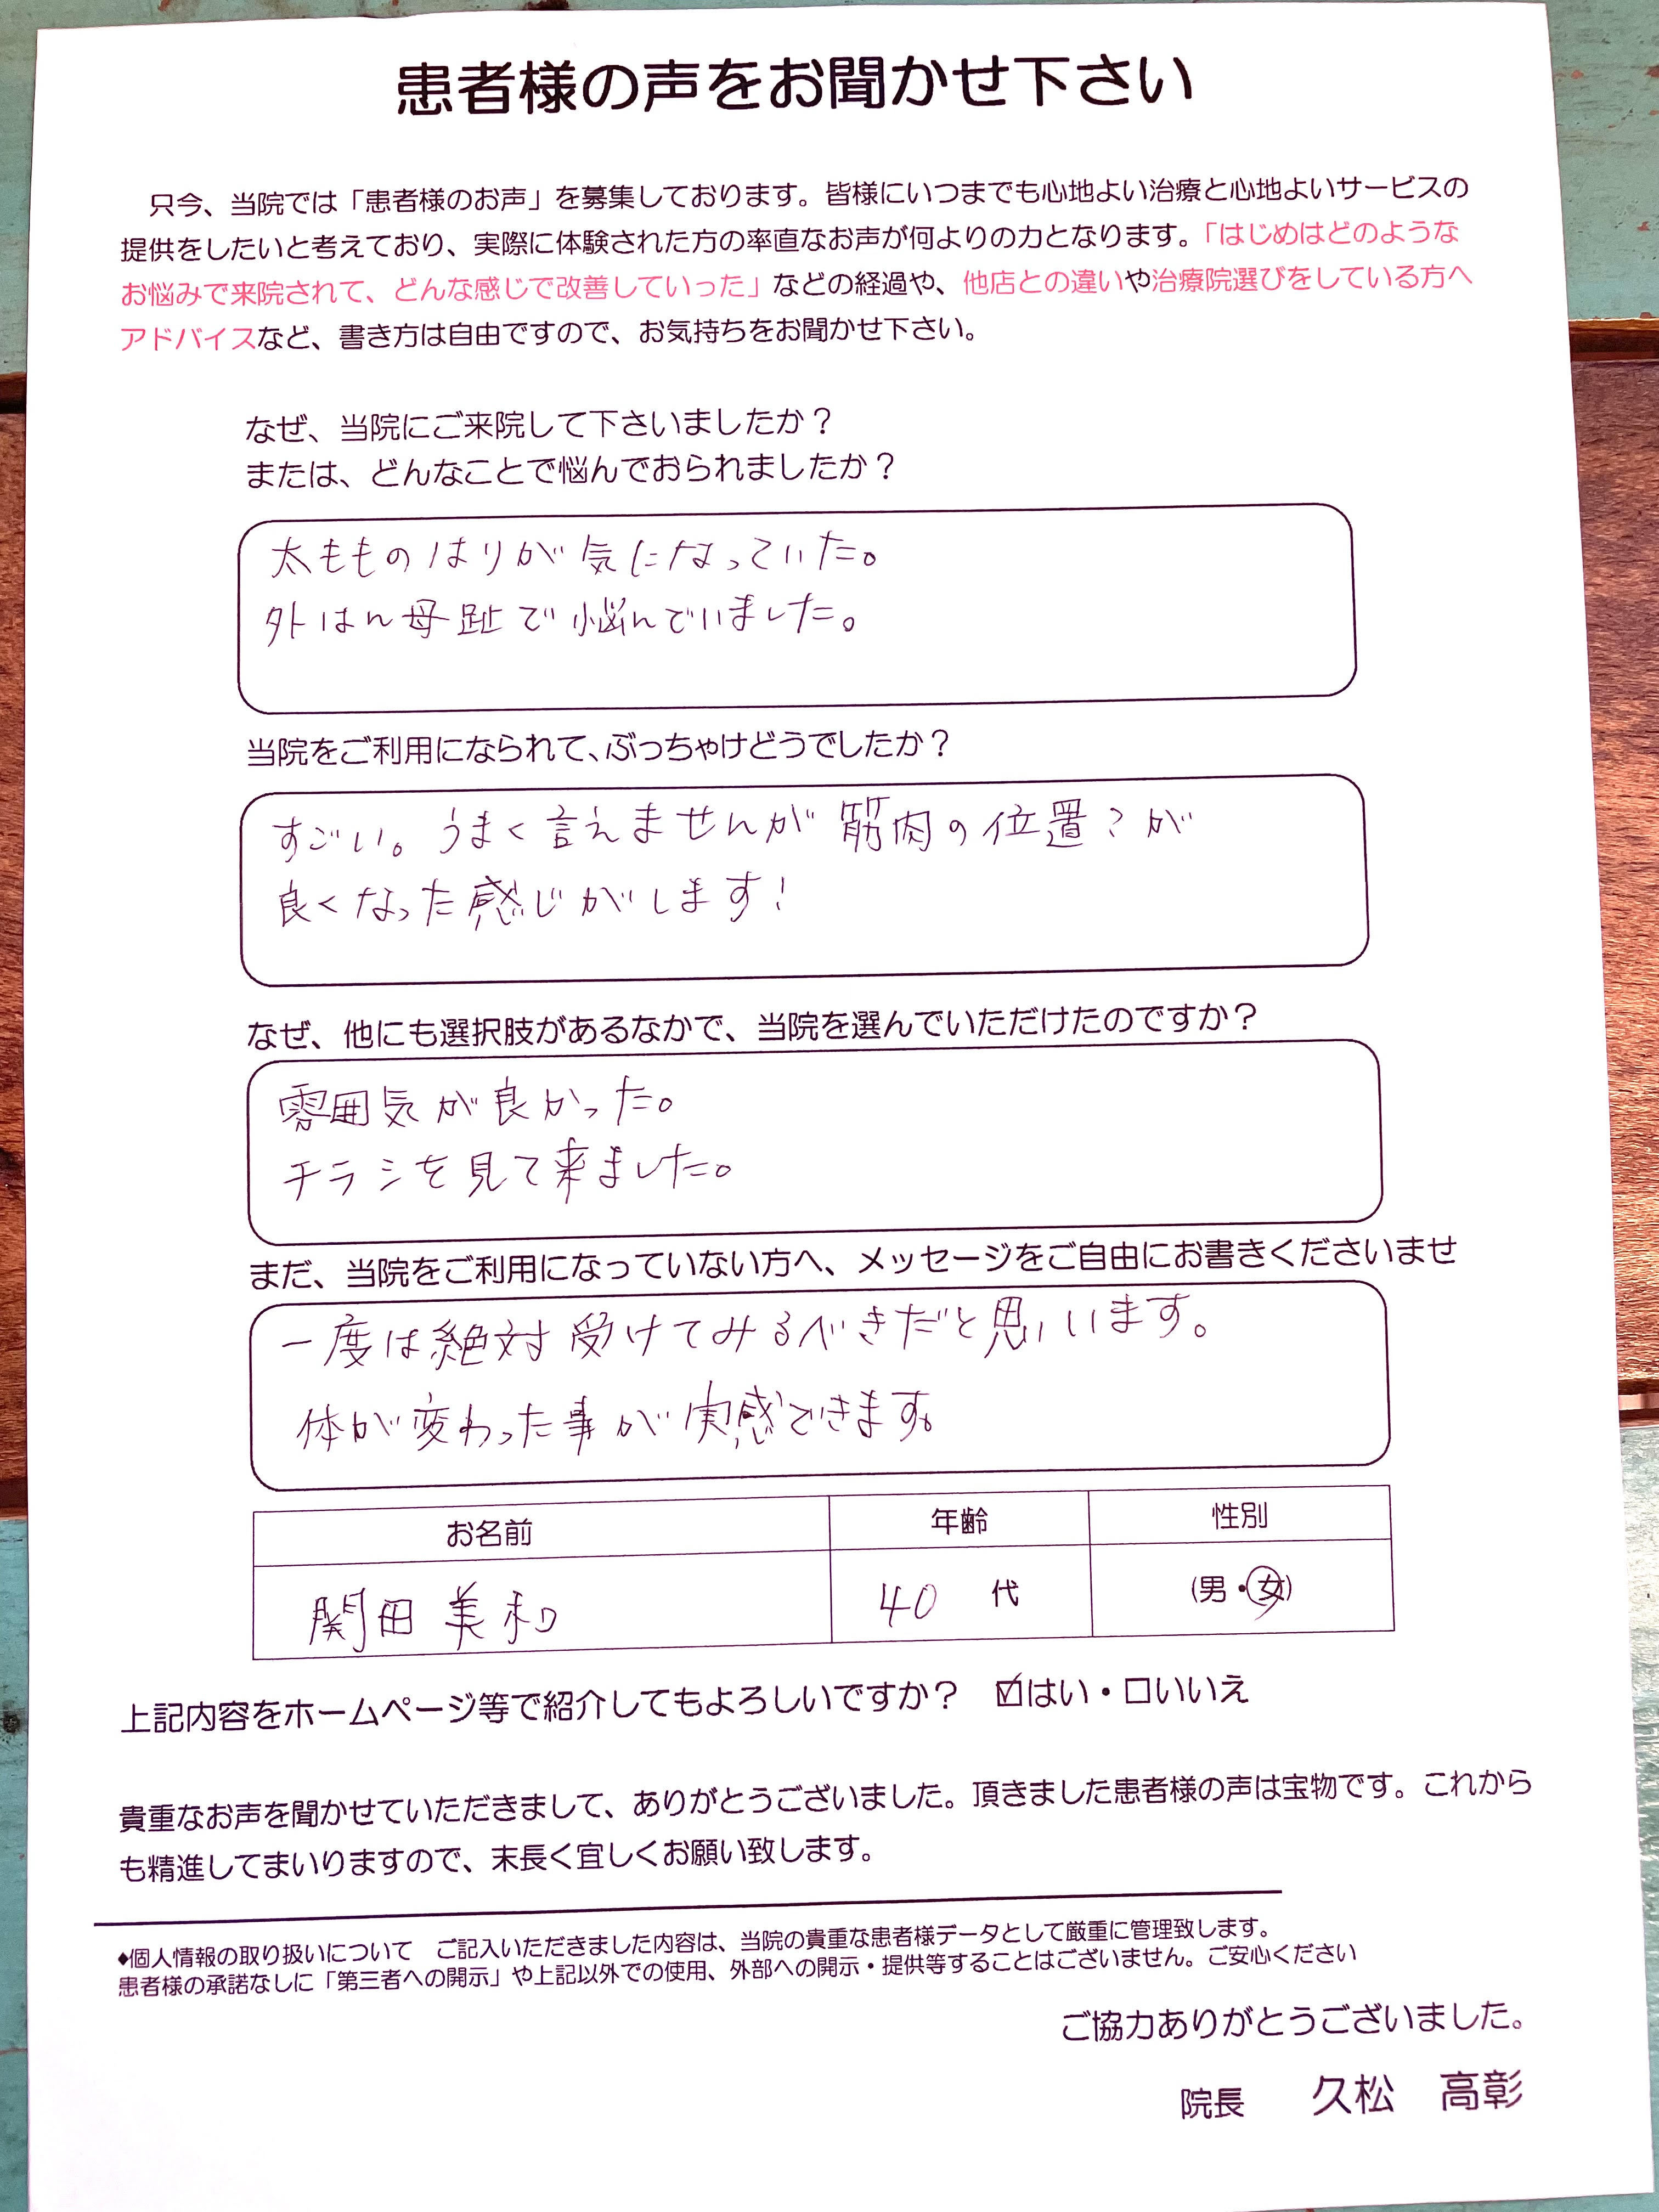 患者様の声をお聞かせ下さい
只今、当院では「患者様のお声」を募集しております。皆様にいつまでも心地よい治療と心地よいサービスの
提供をしたいと考えており、実際に体験された方の率直なお声が何よりの力となります。「はじめはどのような
お悩みで来院されて、どんな感じで改善していった」などの経過や、他店との違いや治療院選びをしている方へ
アドバイスなど、書き方は自由ですので、お気持ちをお聞かせ下さい。
なぜ、当院にご来院して下さいましたか？
または、どんなことで悩んでおられましたか？
太もものはりが気になっていた。
外はん母趾で悩んでいました。
当院をご利用になられて、ぶっちゃけどうでしたか？
すごい。うまく言えませんが筋肉の位置？が
良くなった感じがします！
なぜ、他にも選択肢があるなかで、当院を選んでいただけたのですか？
雰囲気が良かった。
チラシを見て来ました。
まだ、当院をご利用になっていない方へ、メッセージをご自由にお書きくださいませ
一度は絶対受けてみるべきだと思います。
体が変わった事が実感できます。
お名前 年齢 性別
関田 美和 40 代 (男・女)
上記内容をホームページ等で紹介してもよろしいですか？ ☑はい・□いいえ
貴重なお声を聞かせていただきまして、ありがとうございました。頂きました患者様の声は宝物です。これから
も精進してまいりますので、末長く宜しくお願い致します。
◆個人情報の取り扱いについて ご記入いただきました内容は、当院の貴重な患者様データとして厳重に管理致します。
患者様の承諾なしに「第三者への開示」や上記以外での使用、外部への開示・提供等することはございません。ご安心ください
ご協力ありがとうございました。
院長 久松 高彰